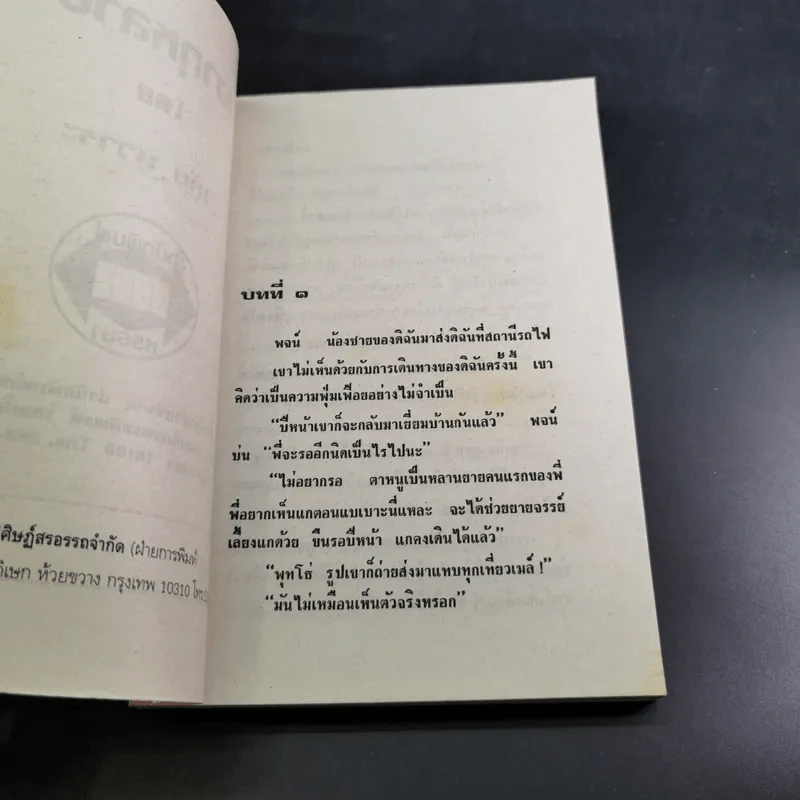 ศิษฏ์สรอรรถจำกัด (ฝ่ายการพิมพ์
ห้วยขวาง กรุงเทพ 10310
บทที่ ๑
พจน์ น้องชายของดิฉันมาส่งดิฉันที่สถานีรถไฟ
เขาไม่เห็นด้วยกับการเดินทางของดิฉันครั้งนี้ เขา
คิดว่าเป็นความฟุ่มเฟือยอย่างไม่จำเป็น
“ปีหน้าเขาก็จะกลับมาเยี่ยมบ้านกันแล้ว” พจน์
บ่น “พี่จะรออีกนิดเป็นไรไปนะ”
“ไม่อยากรอ ตาหนูเป็นหลานยายคนแรกของพี่
พี่อยากเห็นแกตอนแบเบาะนี่แหละ จะได้ช่วยยายจรรย์
เลี้ยงแกด้วย ขืนรอปีหน้า แกคงเดินได้แล้ว”
“พุทโธ่ รูปเขาก็ถ่ายส่งมาแทบทุกเที่ยวเมล์ !”
“มันไม่เหมือนเห็นตัวจริงหรอก”